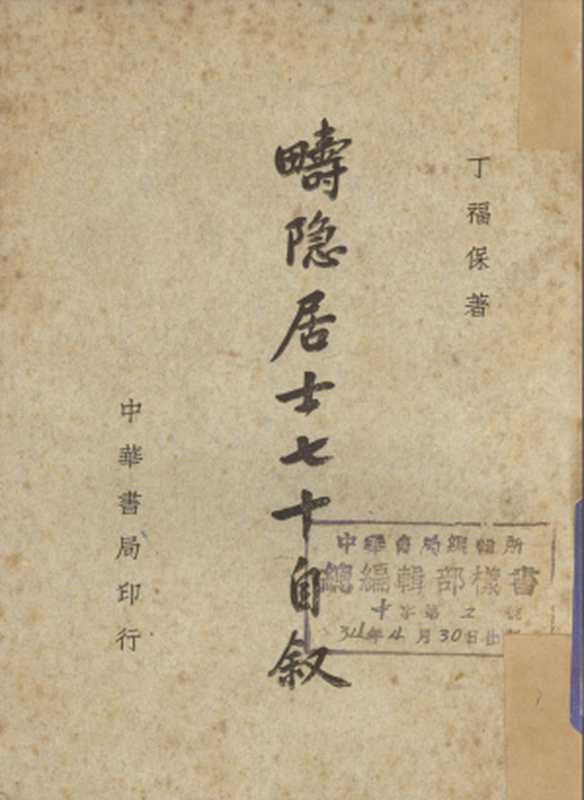 丁福保著
畴隐居士七十自叙
中華書局印行
中華書局編輯所
總編輯部樣書
十字第2號
34年4月30日出